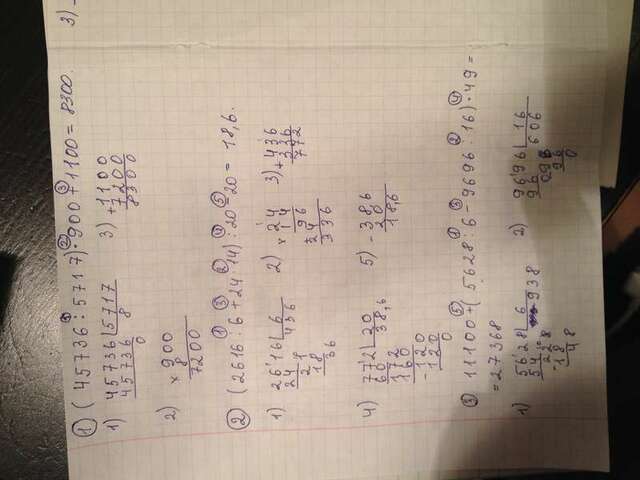 ① ( 45736 : 5717) · 900 + 1100 = 8300.
3)
1) 45736 | 5717
45736 8
0
3) + 1100
7200
8300
2) × 900
8
7200
② (2616 : 6 + 24 · 14) : 20 - 20 = 18,6.
1) 2616 | 6
24 436
21
18
36
2) × 24
14
96
24
336
3) + 436
336
772
4) 772 | 20
60 38,6
172
160
- 120
120
0
5) - 38,6
20
18,6
③ 11100 + ( 5628 : 6 - 9696 : 16) · 49 =
= 27368
1) 5628 | 6
54 938
228
- 18
48
2) 9696 | 16
96 606
096
96
0